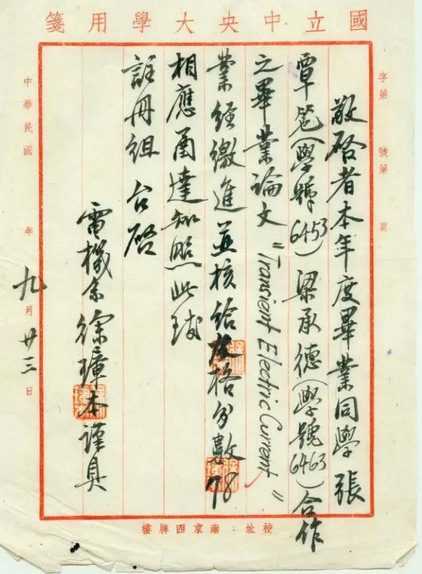 國立中央大學用箋
字第 號第 頁
敬啓者本年度畢業同學張
覃(學號6453)梁承德(學號6463)合作
之畢業論文"Transient Electric Current"
業經繳進並核給及格分數78
相應函達知照此致
註冊組 台啓
電機系徐璋本謹具
中華民國 年九月廿三日
校址:南京四牌樓